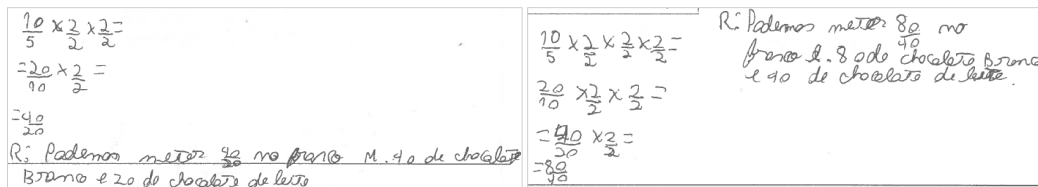 10/5 × 2/2 × 2/2 =
= 20/10 × 2/2 =
= 40/20
R: Podemos meter 40/20 no franco M. 40 de chocolate
Branco e 20 de chocolate de leite
10/5 × 2/2 × 2/2 × 2/2 =
20/10 × 2/2 × 2/2 =
= 40/20 × 2/2 =
= 80/40
R: Podemos meter 80/40 no
franco L. 80 de chocolate Branco
e 40 de chocolate de leite.